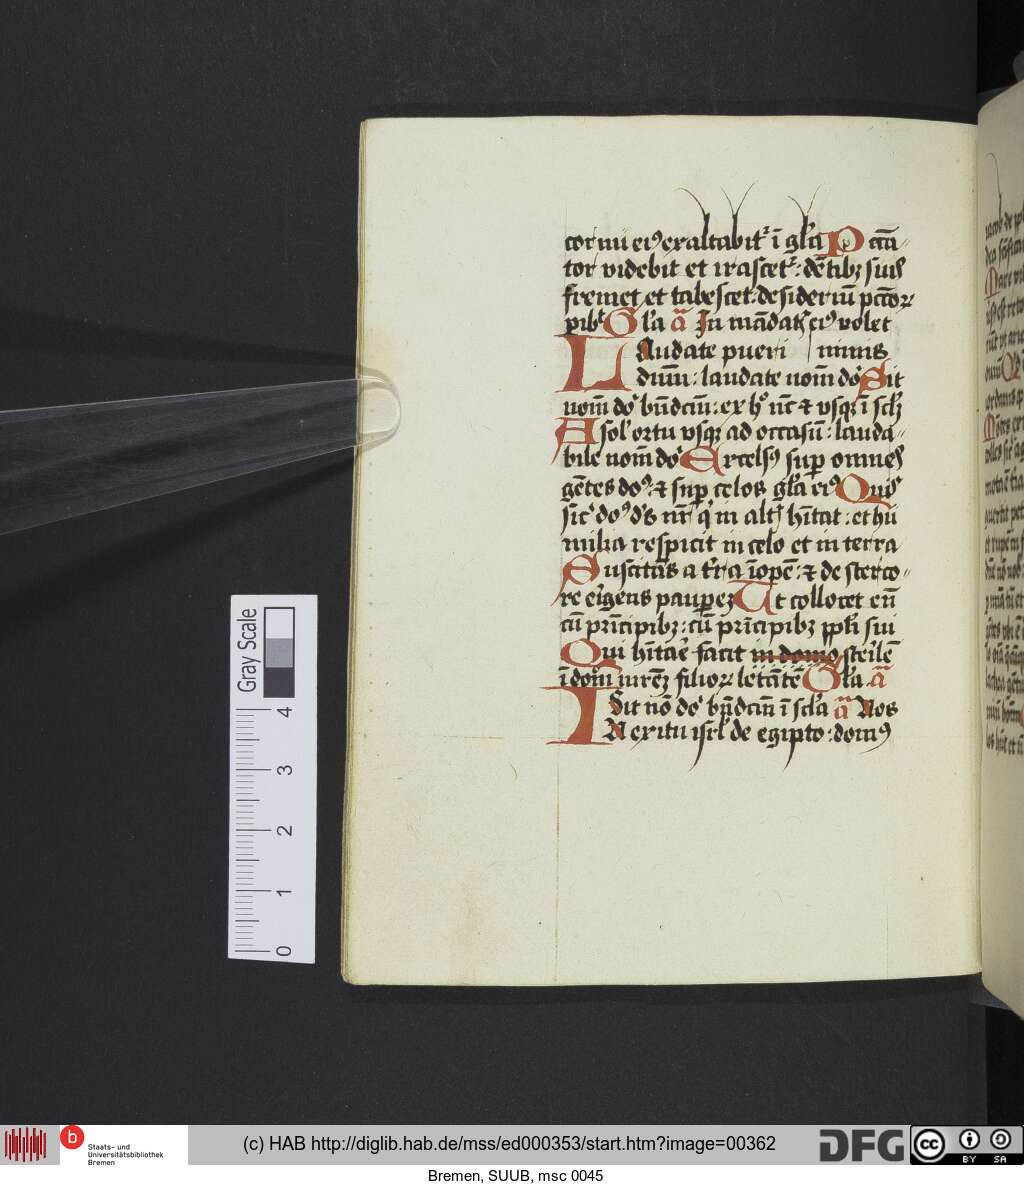 cornu eiꝰ exaltabitᷣ ī gl̄a Pccā
tor videbit et irascetᷣ: dētibꝫ suis
fremet et tabescet: desideriū pctōꝝ
pibᷣt Gl̄a ā In mādatꝭ eiꝰ volet
LAudate pueri nimis
dnūm: laudate nom̄ dōi Sit
nom̄ dōi bn̄dcm̄: ex hᷣ nūc ⁊ vsqꝫ ī scl̄ꝫ
A solᷤ ortu vsqꝫ ad occasū: lauda
bile nom̄ dōi Excelsꝰ suꝑ omnes
gētes dōꝰ: ⁊ suꝑ celos gl̄a eiꝰ Quis
sicᷤ dōꝰ dꝰs nr̄ qᷤ in altꝭ hītat: et hū
milia respicit in celo et in terra
Suscitās a tr̄a īopē: ⁊ de sterco
re eīgens pauꝑeꝫ Ut collocet eū
cū prīcipibꝫ: cū prīcipibꝫ ppl̄i sui
Qui hītaē facit in domo sterilē
ī domᷤ mr̄eꝫ filioꝝ letātē Gl̄a ā
Sit nō dōi bn̄dcm̄ ī scl̄a ā Nos
IN exitu isrl̄ de egipto: domꝰ
Gray Scale
4
3
2
1
0
b
Staats- und
Universitätsbibliothek
Bremen
(c) HAB http://diglib.hab.de/mss/ed000353/start.htm?image=00362
DFG
cc
BY SA
Bremen, SUUB, msc 0045